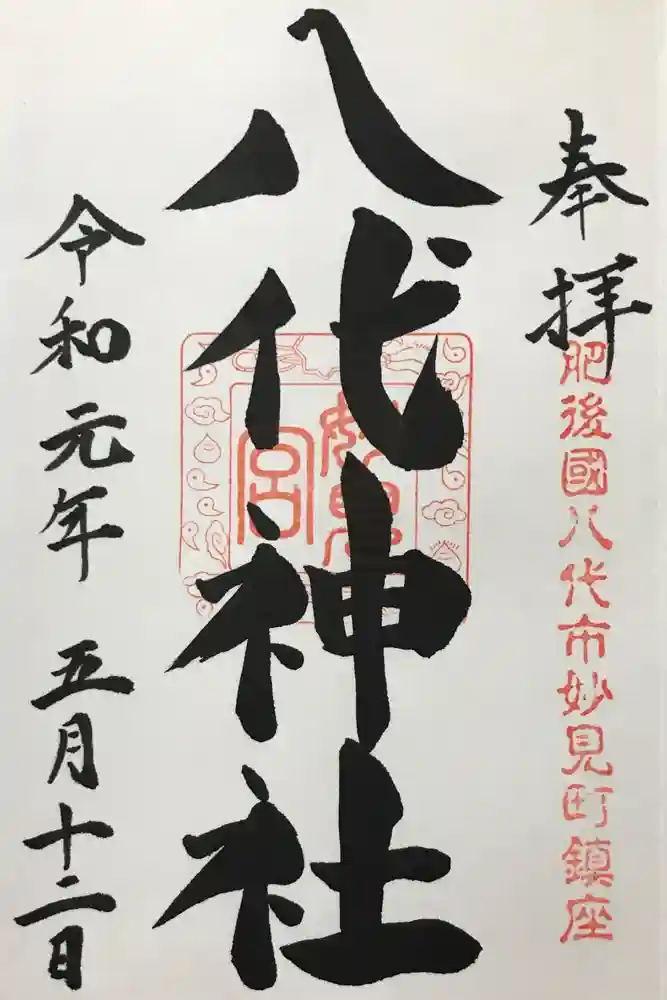 奉拝
肥後國八代市妙見町鎮座
八代神社
妙見宮
令和元年 五月十二日